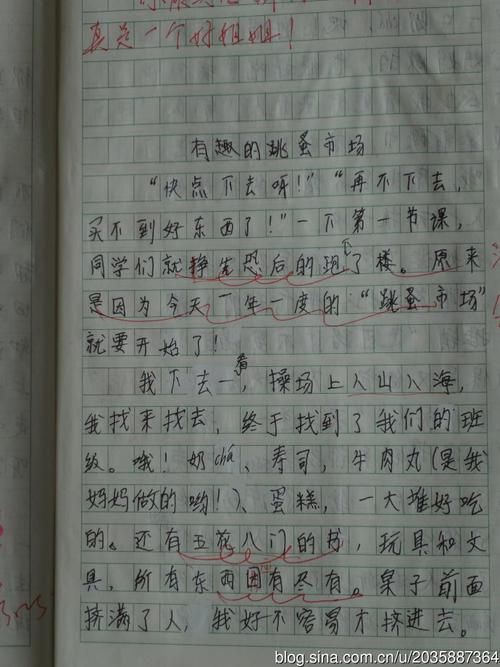 真是一个好姐姐！
有趣的跳蚤市场
“快点下去呀！”“再不下去，
买不到好东西了！”一下第一节课，
同学们就挣先恐后的跑了楼。原来
是因为今天一年一度的“跳蚤市场”
就要开始了！
我下去一看，操场上人山人海，
我找来找去，终于找到了我们的班
级。哦！奶chá、寿司，牛肉丸（是我
妈妈做的哟！）、蛋糕，一大堆好吃
的。还有五花八门的书，玩具和文
具，所有东西因有尽有。桌子前面
挤满了人，我好不容易才挤进去。
blog.sina.com.cn/u/2035887364